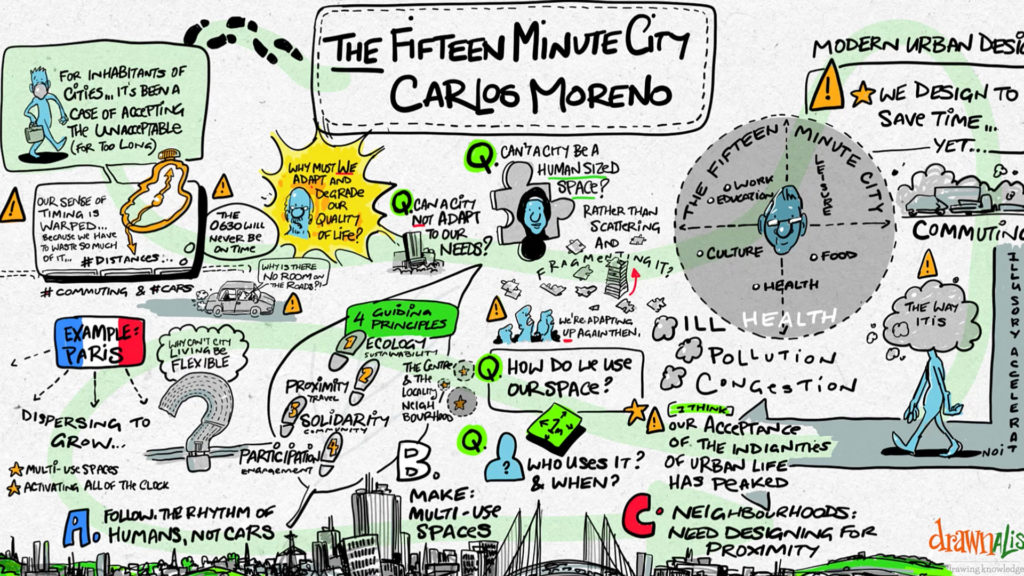 THE FIFTEEN MINUTE CITY
CARLOS MORENO
FOR INHABITANTS OF
CITIES... IT'S BEEN A
CASE OF ACCEPTING
THE UNACCEPTABLE
(FOR TOO LONG)
OUR SENSE OF
TIMING IS
WARPED...
BECAUSE WE HAVE
TO WASTE SO MUCH
OF IT...
#DISTANCES...
#COMMUTING & #CARS
THE
0630 WILL
NEVER BE
ON TIME
WHY IS THERE
NO ROOM ON
THE ROADS?!
WHY MUST WE
ADAPT AND
DEGRADE
OUR
QUALITY
OF LIFE?
Q.
CAN A CITY
NOT ADAPT
TO OUR
NEEDS?
Q.
CAN'T A CITY BE A
HUMAN SIZED
SPACE?
RATHER
THAN
SCATTERING
AND
FRAGMENTING IT?
WE'RE ADAPTING
UP AGAIN THEN.
EXAMPLE:
PARIS
DISPERSING TO
GROW...
MULTI-USE SPACES
ACTIVATING ALL OF THE CLOCK
WHY CAN'T CITY
LIVING BE
FLEXIBLE
4 GUIDING
PRINCIPLES
1
ECOLOGY
SUSTAINABILITY
2
PROXIMITY
TRAVEL
3
SOLIDARITY
COMMUNITY
4
PARTICIPATION
ENGAGEMENT
THE CENTRE
& THE
LOCALITY
NEIGH
BOURHOOD
Q.
HOW DO WE USE
OUR SPACE?
Q.
?
WHO USES IT?
& WHEN?
A.
FOLLOW THE RHYTHM OF
HUMANS, NOT CARS
B.
MAKE:
MULTI-USE
SPACES
C.
NEIGHBOURHOODS:
NEED DESIGNING FOR
PROXIMITY
THE FIFTEEN MINUTE CITY
WORK
EDUCATION
LEISURE
CULTURE
FOOD
HEALTH
ILL HEALTH
POLLUTION
CONGESTION
I THINK
OUR ACCEPTANCE
OF THE INDIGNITIES
OF URBAN LIFE
HAS PEAKED
MODERN URBAN DESI
WE DESIGN TO
SAVE TIME...
YET...
COMMUTING
THE WAY
IT IS
ILLUSORY ACCELERAT
NOIT
drawnalis
drawing knowledge